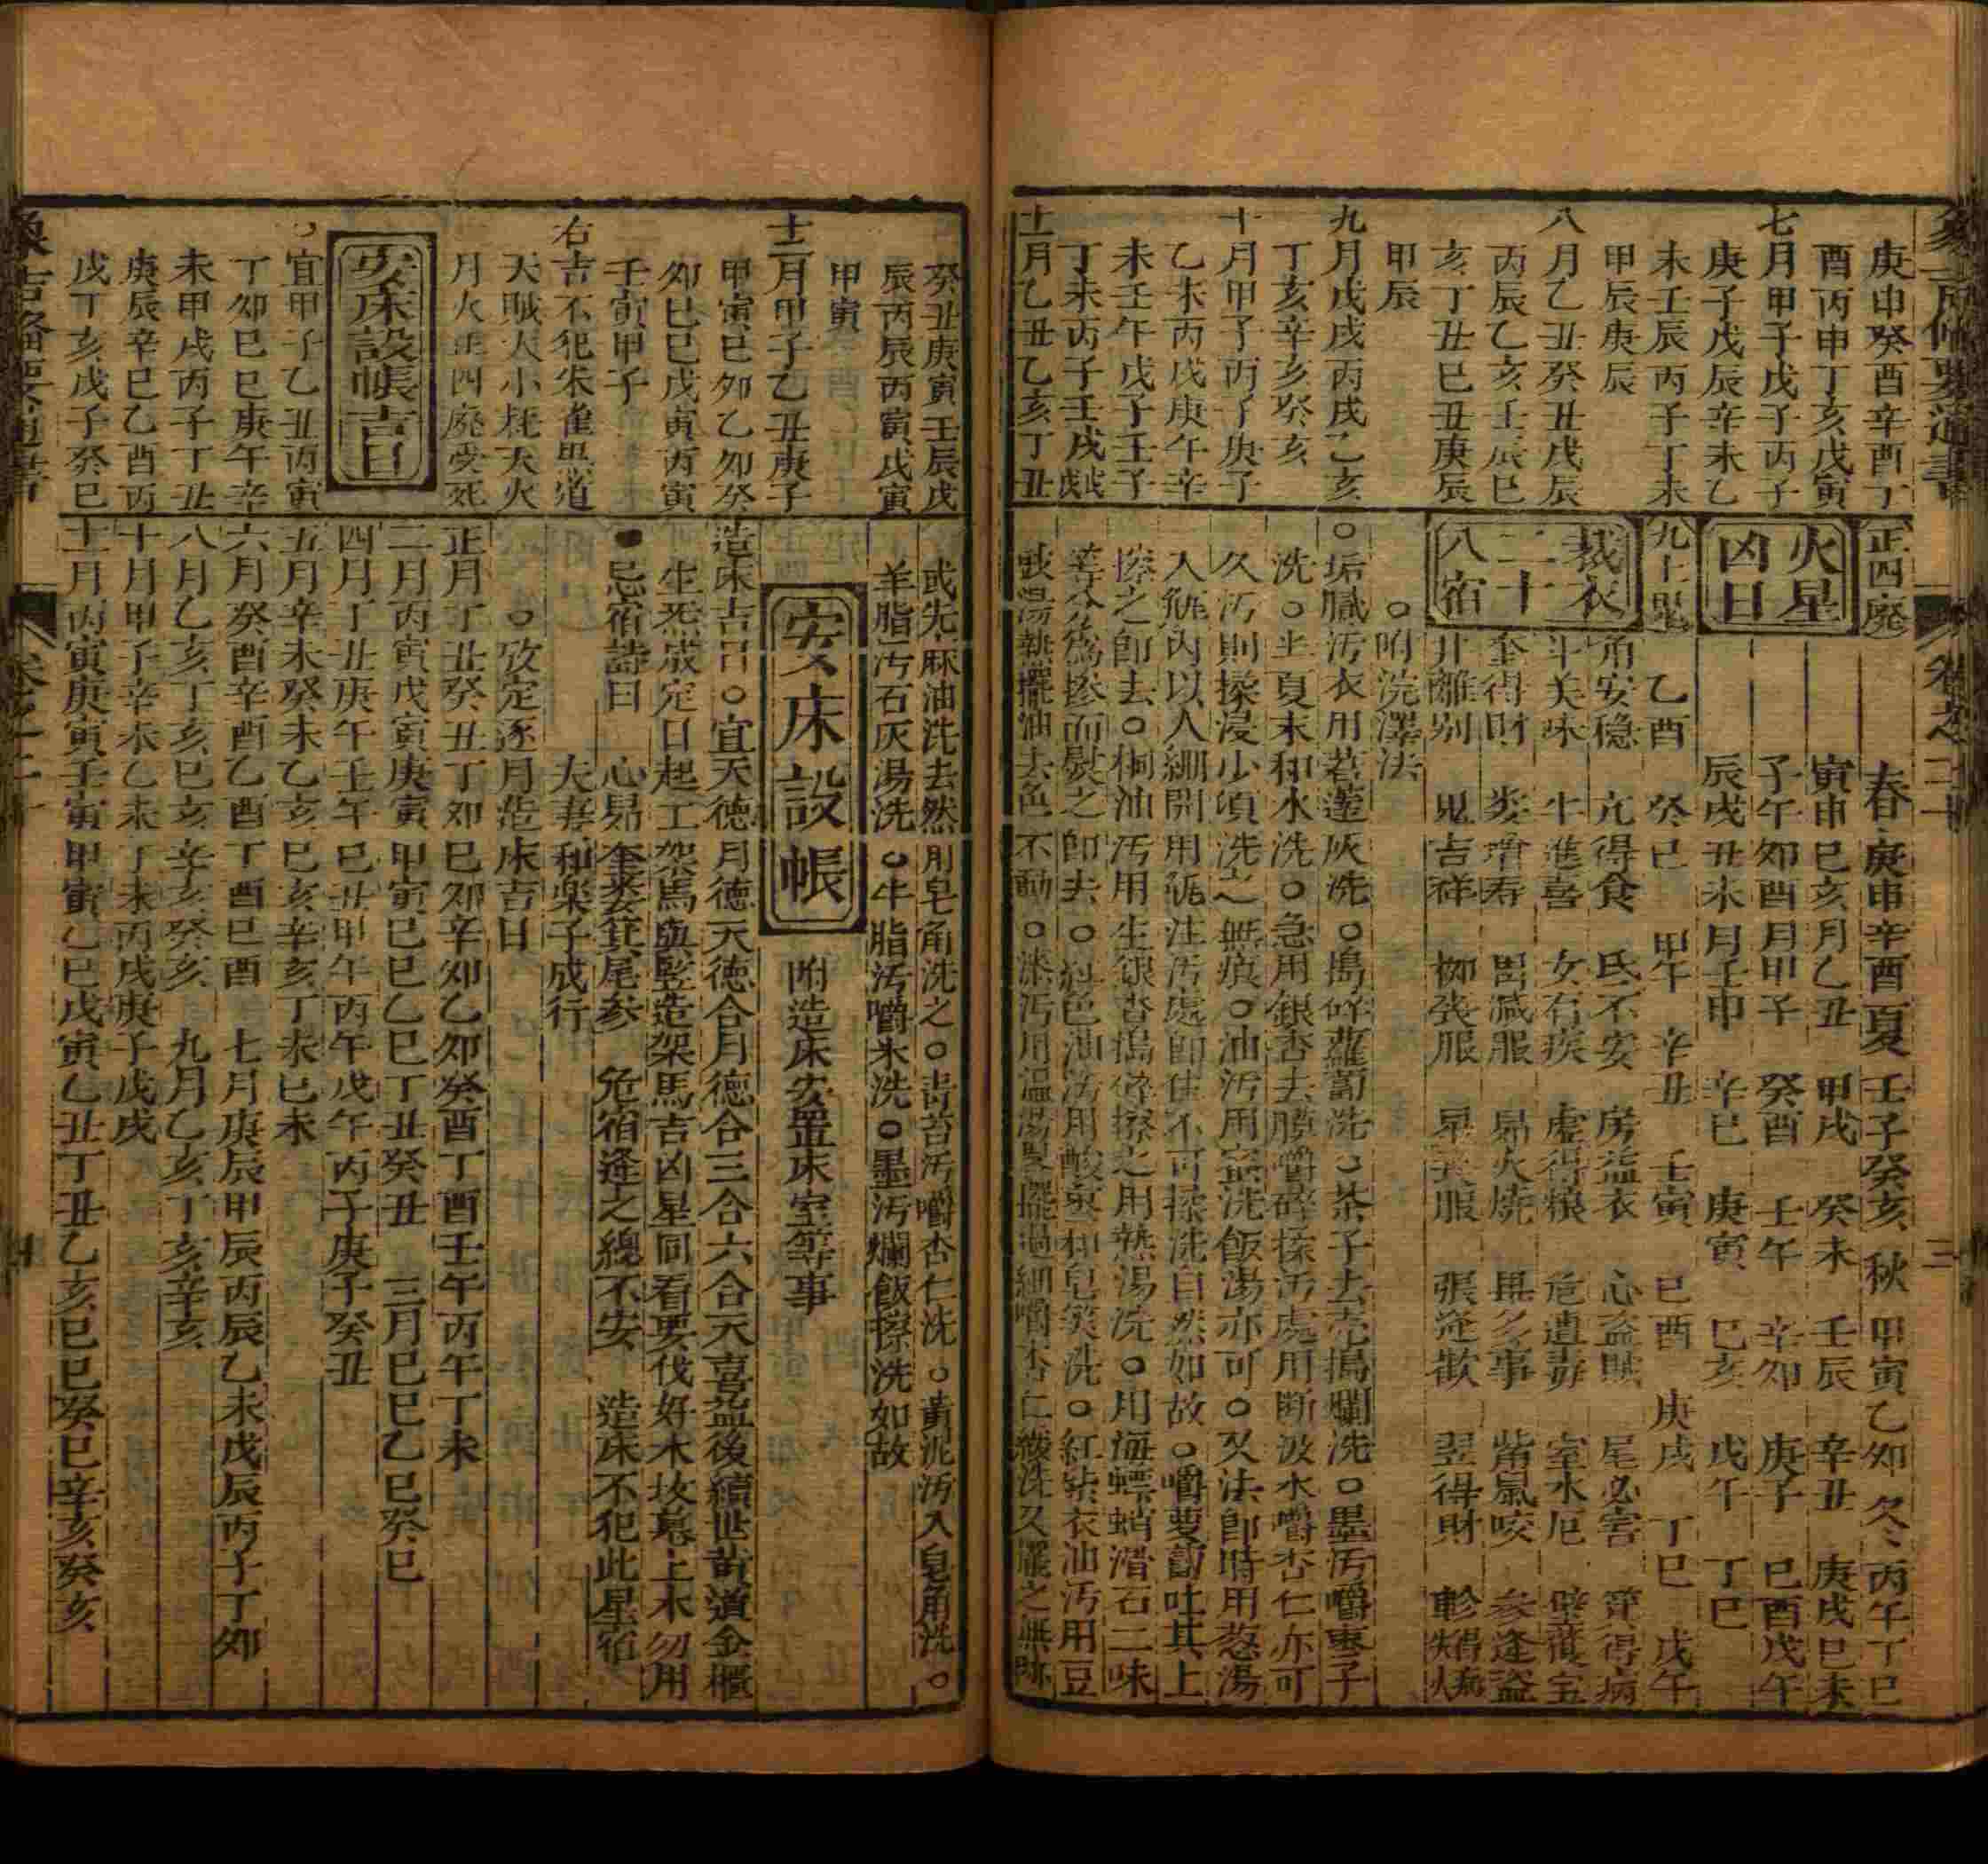 庚申癸酉辛酉丁
酉丙申丁亥戊寅
七月甲子戊子丙子
庚子戊辰辛未乙
未壬辰丙子丁未
甲辰庚辰
八月乙丑癸丑戊辰
丙辰乙亥壬辰巳
亥丁丑巳丑庚辰
甲辰
九月戊戌丙戌乙亥
丁亥辛亥癸亥
十月甲子丙子庚子
乙未丙戌庚午辛
未壬午戊子壬子
丁未丙子壬戌
十一月乙丑乙亥丁丑
正四廢 春庚申辛酉夏壬子癸亥秋甲寅乙卯冬丙午丁巳
火星凶日
寅申巳亥月乙丑 甲戌 癸未 壬辰 辛丑 庚戌巳未
子午卯酉月甲子 癸酉 壬午 辛卯 庚子 巳酉戊午
辰戌丑未月壬申 辛巳 庚寅 巳亥 戊午 丁巳
九土鬼 乙酉 癸巳 甲午 辛丑 壬寅 巳酉 庚戌 丁巳 戊午
裁衣二十八宿
角安穩 亢得食 氐不安 房益衣 心盗賊 尾必害 箕得病
斗美味 牛進喜 女有疾 虛得粮 危遭毒 室水厄 壁獲宝
奎得財 婁增寿 胃減服 昴火燒 畢多事 觜鼠咬 参逢盗
井離别 鬼吉祥 柳丧服 星丧服 張逢歡 翌得財 軫
○附洗澤法
○垢膩汚衣用若蓬灰洗○搗碎蘿蔔洗○茶子去壳搗爛洗○墨汚嚼棗子
洗○生夏末和水洗○急用銀杏去膜嚼碎揉汚處用断波水嚼杏仁亦可
久汚則揉浸少頃洗之無痕○油汚用盐洗飯湯亦可○又法即時用葱湯
入瓶内以人綳開用瓶注汚處即佳不可揉洗自然如故○嚼蘿蔔吐其上
擦之即去○桐油汚用生銀杏搗碎擦之用熱湯洗○用海螵蛸滑石二味
等分為掺而熨之即去○油汚用酸和皂筴洗○紅紫衣油汚用豆
豉湯熱擺油去色不動○漆汚用温湯擺過細嚼杏仁洗又擺之無跡
癸丑庚寅壬辰戊
辰丙辰丙寅戊寅
甲寅
十二月甲子乙丑庚子
甲寅巳卯乙卯癸
卯巳巳戊寅丙寅
壬寅甲子
右吉不犯朱雀黑道
天賊大小耗天火
月火正四廢受死
安床設帳吉日
宜甲子乙丑丙寅
丁卯巳巳庚午辛
未甲戌丙子丁丑
庚辰辛巳乙酉丙
戌丁亥戊子癸巳
或先麻油洗去然用皂角洗之○青苔汚嚼杏仁洗○黄泥汚入皂角洗○
羊脂汚石灰湯洗○牛脂汚嚼朱洗○墨汚爛飯擦洗如故
安床設帳 附造床安置床室等事
造床吉日○宜天德月德天德合月德合三合六合天喜益後續世黄道金櫃
生炁成定日起工架馬與竪造架馬吉凶星同看要伐好木坟墓上木勿用
●忌宿詩曰 心昴奎婁箕尾参 危宿逢之總不安 造床不犯此星宿
夫妻和樂子成行
○攷定逐月造床吉日
正月丁丑癸丑丁卯巳卯辛卯乙卯癸酉丁酉壬午丙午丁未
二月丙寅戊寅庚寅甲寅巳巳乙巳丁丑癸丑 三月巳巳乙巳癸巳
四月丁丑庚午壬午巳丑甲午丙午戊午丙子庚子癸丑
五月辛未癸未乙亥巳亥辛亥丁未巳未
六月癸酉辛酉乙酉丁酉巳酉 七月庚辰甲辰丙辰乙未戊辰丙子丁卯
八月乙亥丁亥巳亥辛亥癸亥 九月乙亥丁亥辛亥
十月甲子辛未乙未丁未丙戌庚子戊戌
十一月丙寅庚寅壬寅甲寅乙巳戊寅乙丑丁丑乙亥巳巳癸巳辛亥癸亥